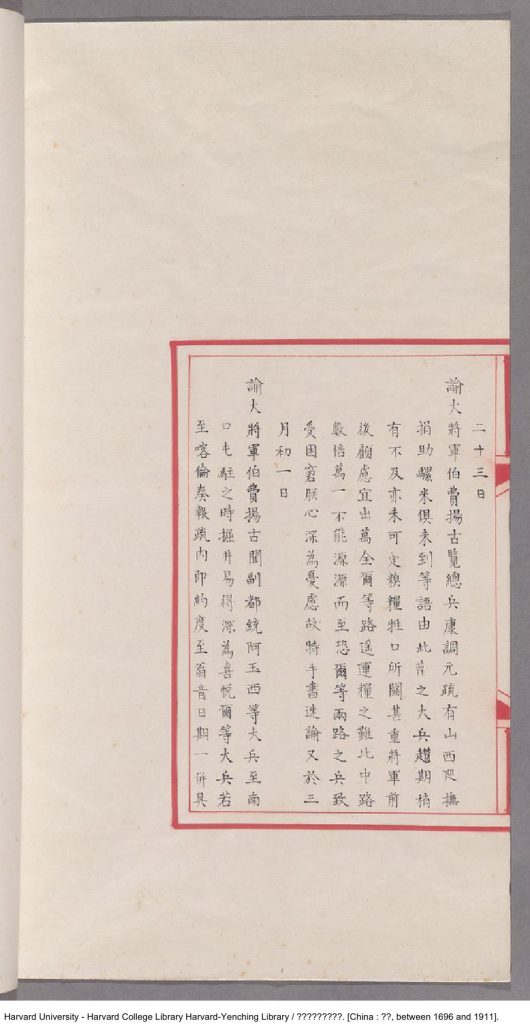 二十三日
諭大將軍伯費揚古覽總兵康調元疏有山西巡撫
捐助騾米俱未到等語由此算之大兵趲期稍
有不及亦未可定糗糧牲口所關甚重將軍前
後顧慮宜出萬全爾等路遥運糧之難比中路
數倍萬一不能源源而至恐爾等兩路之兵致
受困窘朕心深為憂慮故特手書速諭又於三
月初一日
諭大將軍伯費揚古聞副都統阿玉西等大兵至南
口屯駐之時掘井易得深為喜悅爾等大兵若
至喀倫奏報疏內即約度至翁音日期一併具
Harvard University - Harvard College Library Harvard-Yenching Library / ?????????. [China : ??, between 1696 and 1911].